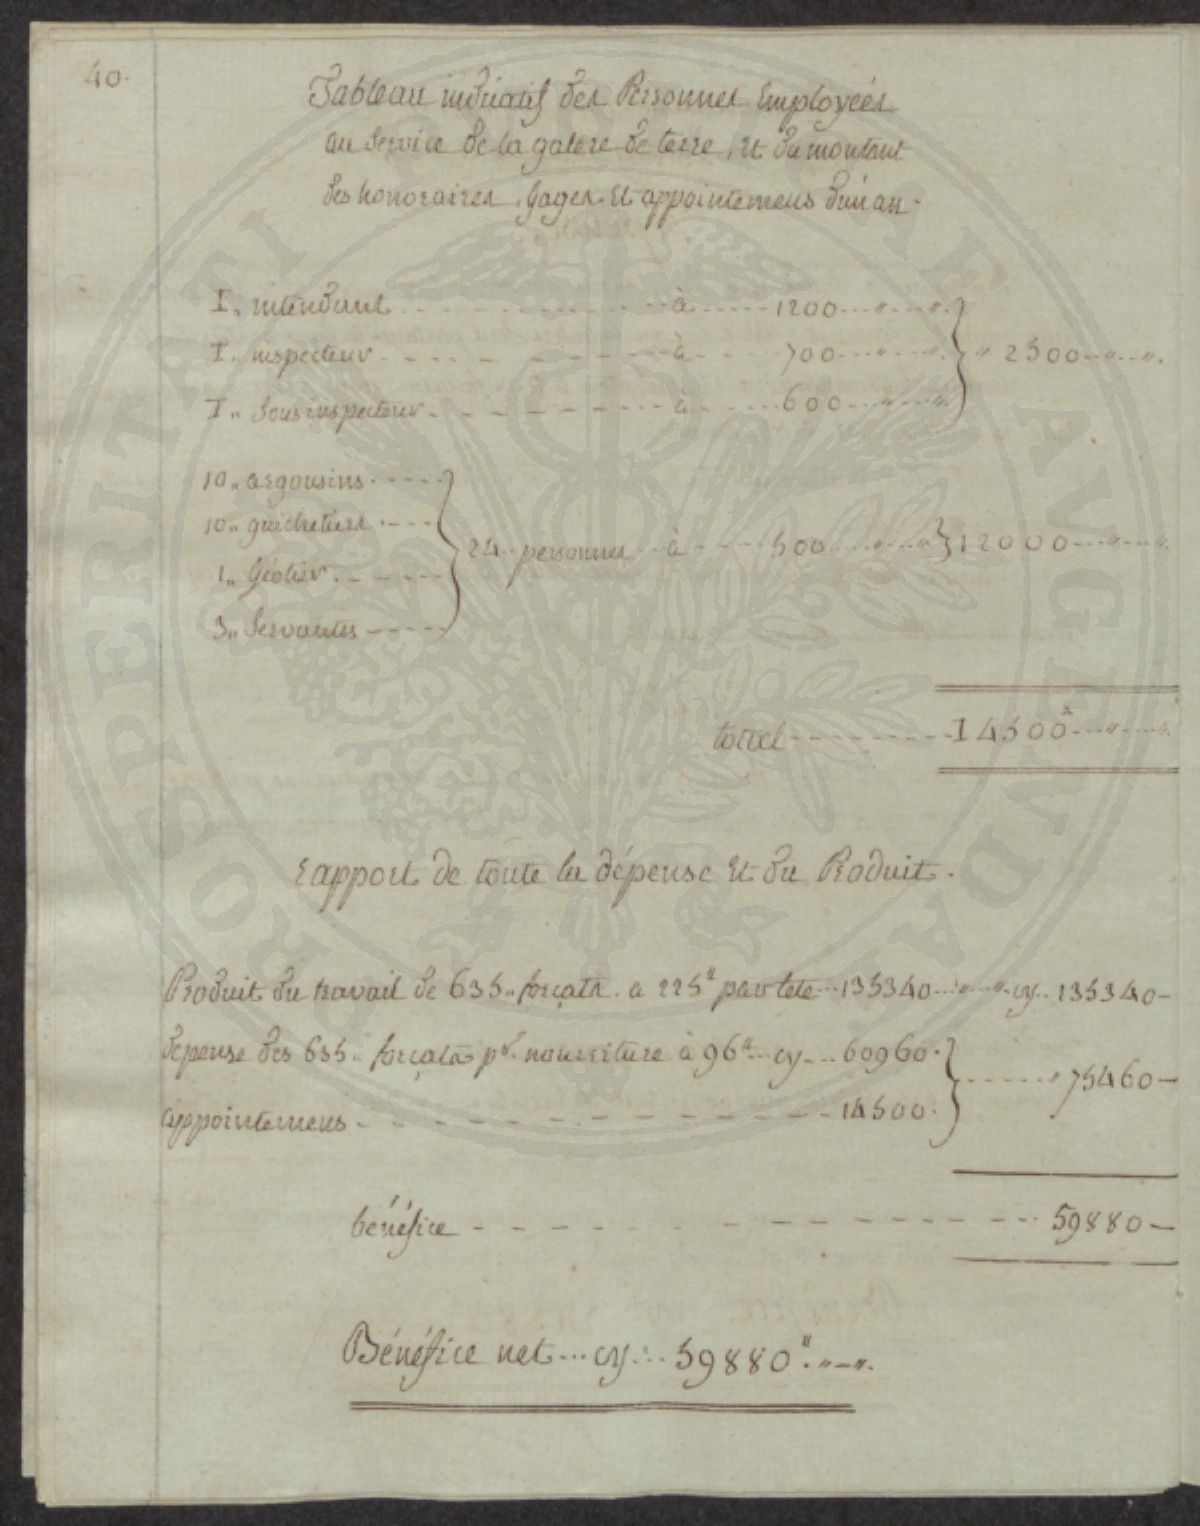 40.
Tableau indicatif des Personnes Employées
au Service de la galere de terre, et du montant
des honoraires, Gages et appointemens d'un an.
I,, intendant - - - à - - - 1200 - - " - - ".
I,, inspecteur - - - à - - - 700 - - " - - ". } " 2500 - - " - - ".
I,, Sous inspecteur - - - à - - - 600 - - " - - ".
10,, argousins - - -
10,, guichetiers - - -
24 personnes à - - - 500 - - " - - " } 12000 - - " - - ".
1,, Géolier - - -
3,, Servantes - - -
total - - - 14500 - - " - - ".
rapport de toute la dépense Et du Produit.
Produit du travail de 635,, forçats a 225 par tete - - 135340 - - " - - " - cy - 135340 -
depense des 635,, forçats pr. nourriture à 96 - - cy - - 60960.
} - - - " 75460 -
appointemens - - - 14500.
bénéfice - - - 59880 -
Bénéfice net - - - cy - - - 59880 . " - ".
PROSPERITATI PUBLICAE AUGENDAE